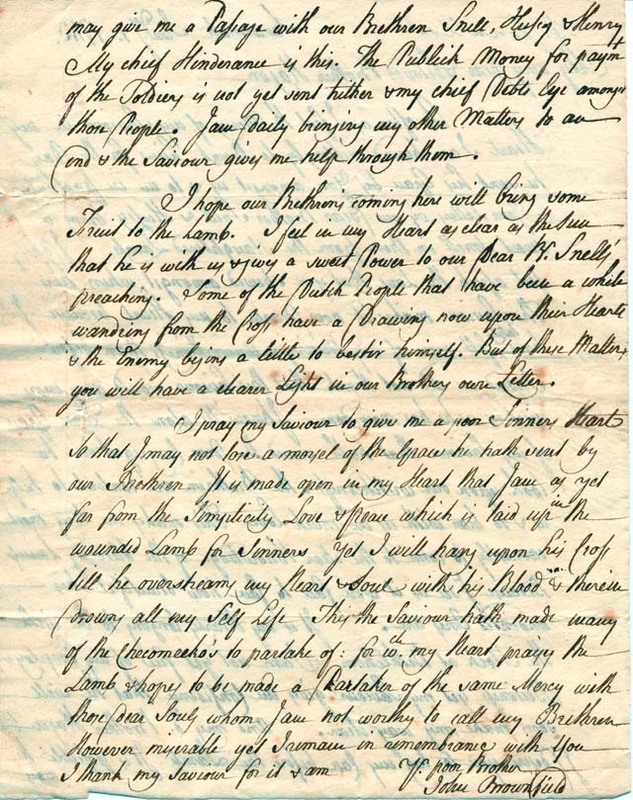 may give me a Passage with our Brethren Snell, Hussy & Henry
My chief Hinderance is this. The Publick Money for paymt
of the Soldiers is not yet sent hither & my chief Debts Lye amongst
those People. I am daily bringing my other Matters to an
End & the Saviour gives me help through them.
I hope our Brethrens coming here will bring some
Fruit to the Lamb. I feel in my Heart as clear as the Sun
that he is with us & gives a sweet Power to our Dear Br. Snell's
preaching. Some of the Dutch People that have been a while
wandring from the Cross have a Drawing now upon their Hearts
& the Enemy begins a little to bestir himself. But of these Matters
you will have a clearer Light in our Brothers own Letter.
I pray my Saviour to give me a poor Sinners Heart
so that I may not lose a morsel of the Grace he hath sent by
our Brethren It is made open in my Heart that I am as yet
far from the Simplicity Love & Peace which is laid up in the
wounded Lamb for Sinners Yet I will hang upon his Cross
till he overstreams my Heart & Soul with his Blood & therein
Drowns all my Self Life This the Saviour hath made many
of the Checomeeko's to partake of: for wch. my Heart prays the
Lamb & hopes to be made a Partaker of the same Mercy with
those dear Souls whom I am not worthy to call my Brethren
However miserable yet I remain in remembrance with You
I thank my Saviour for it & am Yr. poor Brother
John Brownfield